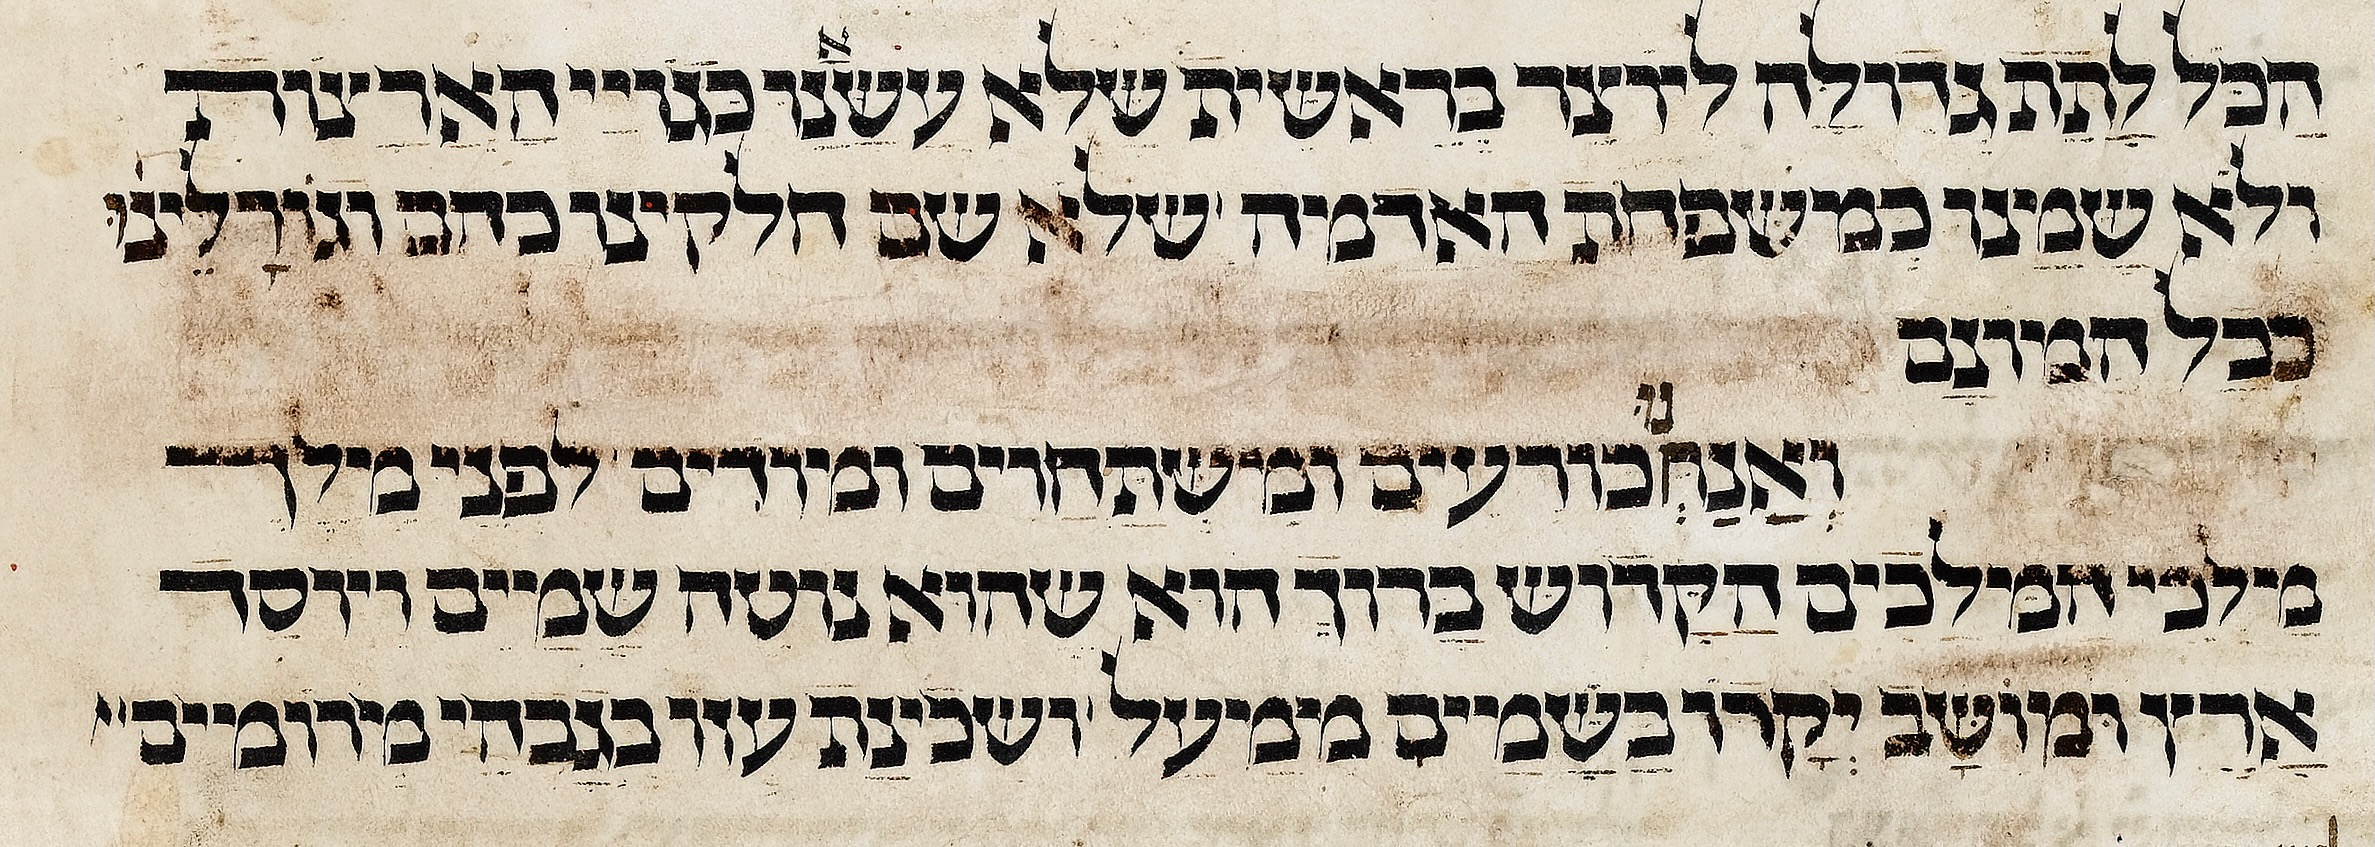 הכל לתת גדולה ליוצר בראשית שלא עשנו כגויי הארצות
ולא שמינו כמשפחת האדמה שלא שם חלקינו כהם וגורלינו
ככל המונם
ואנחנו כורעים ומשתחוים ומודים לפני מלך
מילכי המילכים הקדוש ברוך הוא שהוא נוטה שמים ויוסד
ארץ ומושב יקרו בשמים ממעל ושכינת עוזו בגבהי מרומים